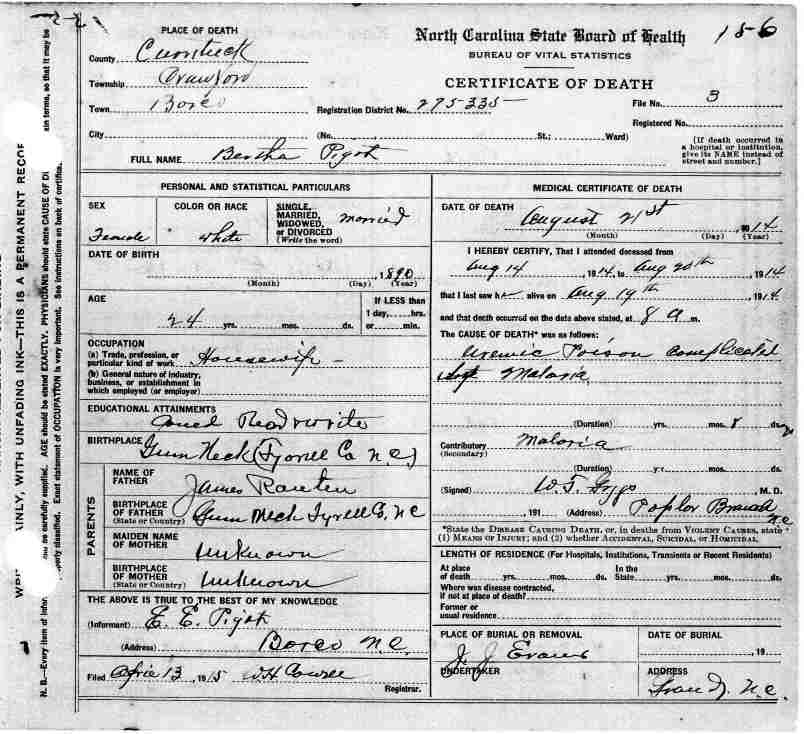 North Carolina State Board of Health
BUREAU OF VITAL STATISTICS
CERTIFICATE OF DEATH
PLACE OF DEATH
County Currituck
Township Crawford
Town
Registration District No. 275-335-
File No. 3
Registered No.
City (No. St.; Ward)
[If death occurred in a hospital or institution, give its NAME instead of street and number.]
FULL NAME Bertha Pigot
PERSONAL AND STATISTICAL PARTICULARS
SEX Female
COLOR OR RACE White
SINGLE, MARRIED, WIDOWED, OR DIVORCED (Write the word) Married
DATE OF BIRTH 1890
(Month) (Day) (Year)
AGE 24 yrs. mos. ds.
If LESS than 1 day, hrs. or min.
OCCUPATION
(a) Trade, profession, or particular kind of work Housewife
(b) General nature of industry, business, or establishment in which employed (or employer)
EDUCATIONAL ATTAINMENTS Read write
BIRTHPLACE Gum Neck (Tyrrell Co N.C.)
PARENTS
NAME OF FATHER James
BIRTHPLACE OF FATHER (State or Country) Gum Neck Tyrrell Co. NC
MAIDEN NAME OF MOTHER Unknown
BIRTHPLACE OF MOTHER (State or Country) Unknown
THE ABOVE IS TRUE TO THE BEST OF MY KNOWLEDGE
(Informant) E. E. Pigot
(Address) N.C.
Filed 13, 1915 W H Registrar.
MEDICAL CERTIFICATE OF DEATH
DATE OF DEATH August 21st 1914
(Month) (Day) (Year)
I HEREBY CERTIFY, That I attended deceased from
Aug 14 1914 to Aug 20th 1914
that I last saw h alive on Aug 19th 1914
and that death occurred on the date above stated, at 8 A m.
The CAUSE OF DEATH* was as follows:
Uremic Poison complicated
Malaria
(Duration) yrs. mos. 8 ds.
Contributory Malaria
(Secondary)
(Duration) yr. mos. ds.
(Signed) W. T. Griggs, M. D.
191 (Address) Poplar Branch NC
*State the DISEASE CAUSING DEATH, or, in deaths from VIOLENT CAUSES, state
(1) MEANS OF INJURY; and (2) whether ACCIDENTAL, SUICIDAL, or HOMICIDAL.
LENGTH OF RESIDENCE (For Hospitals, Institutions, Transients or Recent Residents)
At place of death yrs. mos. ds. In the State yrs. mos. ds.
Where was disease contracted, if not at place of death?
Former or usual residence
PLACE OF BURIAL OR REMOVAL
DATE OF BURIAL
, 19
J. J. Evans
UNDERTAKER
ADDRESS
N.C.
WITH UNFADING INK—THIS IS A PERMANENT
N. B.—Every item of
be carefully supplied. AGE should be stated EXACTLY. PHYSICIANS should state CAUSE OF
classified. Exact statement of OCCUPATION is very important. See instructions on back of certificate.